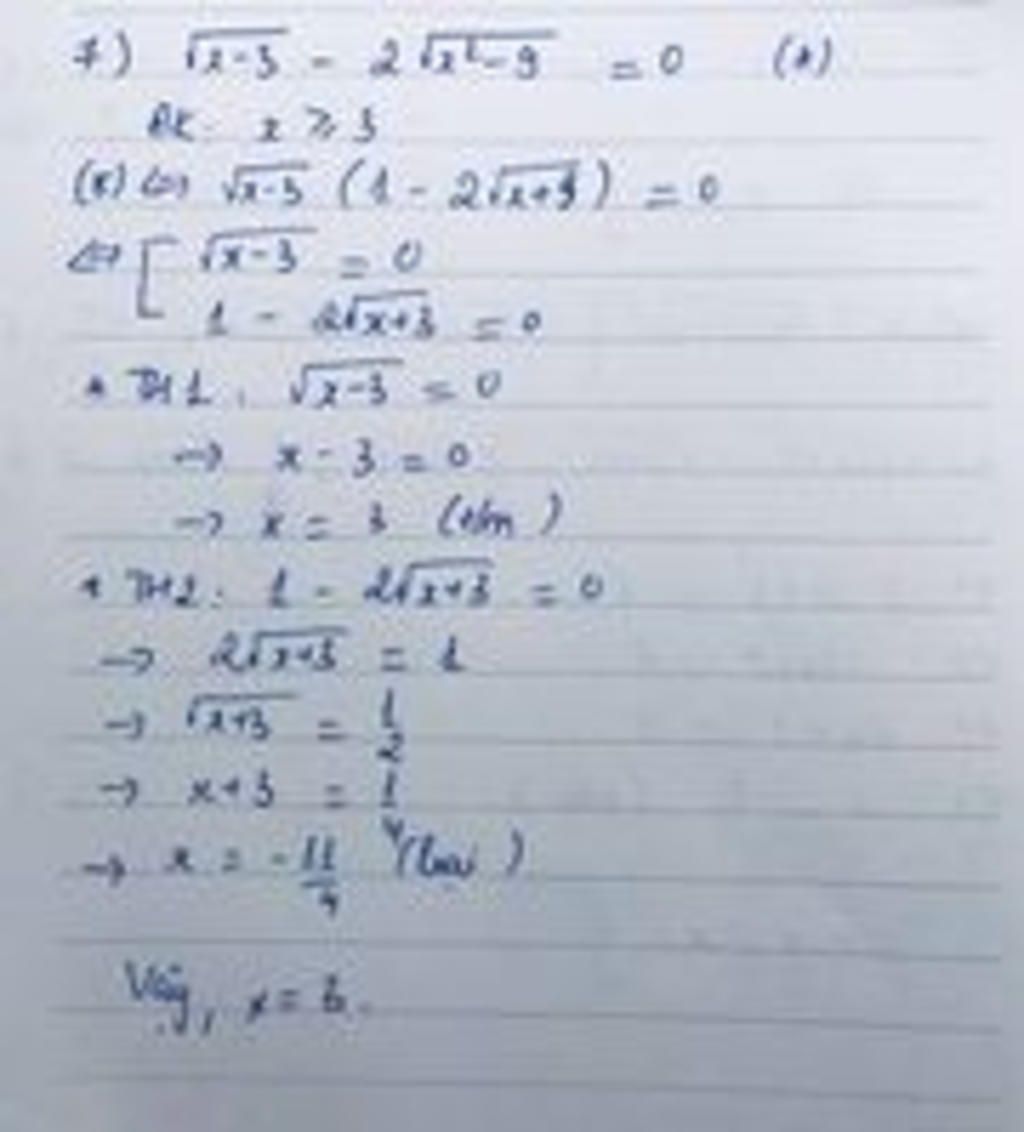 7) √(x-3) - 2√(x²-9) = 0 (*)
ĐK: x ≥ 3
(*) ⇔ √(x-3) (1 - 2√(x+3)) = 0
⇔ [ √(x-3) = 0
1 - 2√(x+3) = 0
* TH1: √(x-3) = 0
→ x - 3 = 0
→ x = 3 (t/m)
* TH2: 1 - 2√(x+3) = 0
→ 2√(x+3) = 1
→ √(x+3) = 1/2
→ x+3 = 1/4
→ x = -11/4 (loại)
Vậy, x = 3.